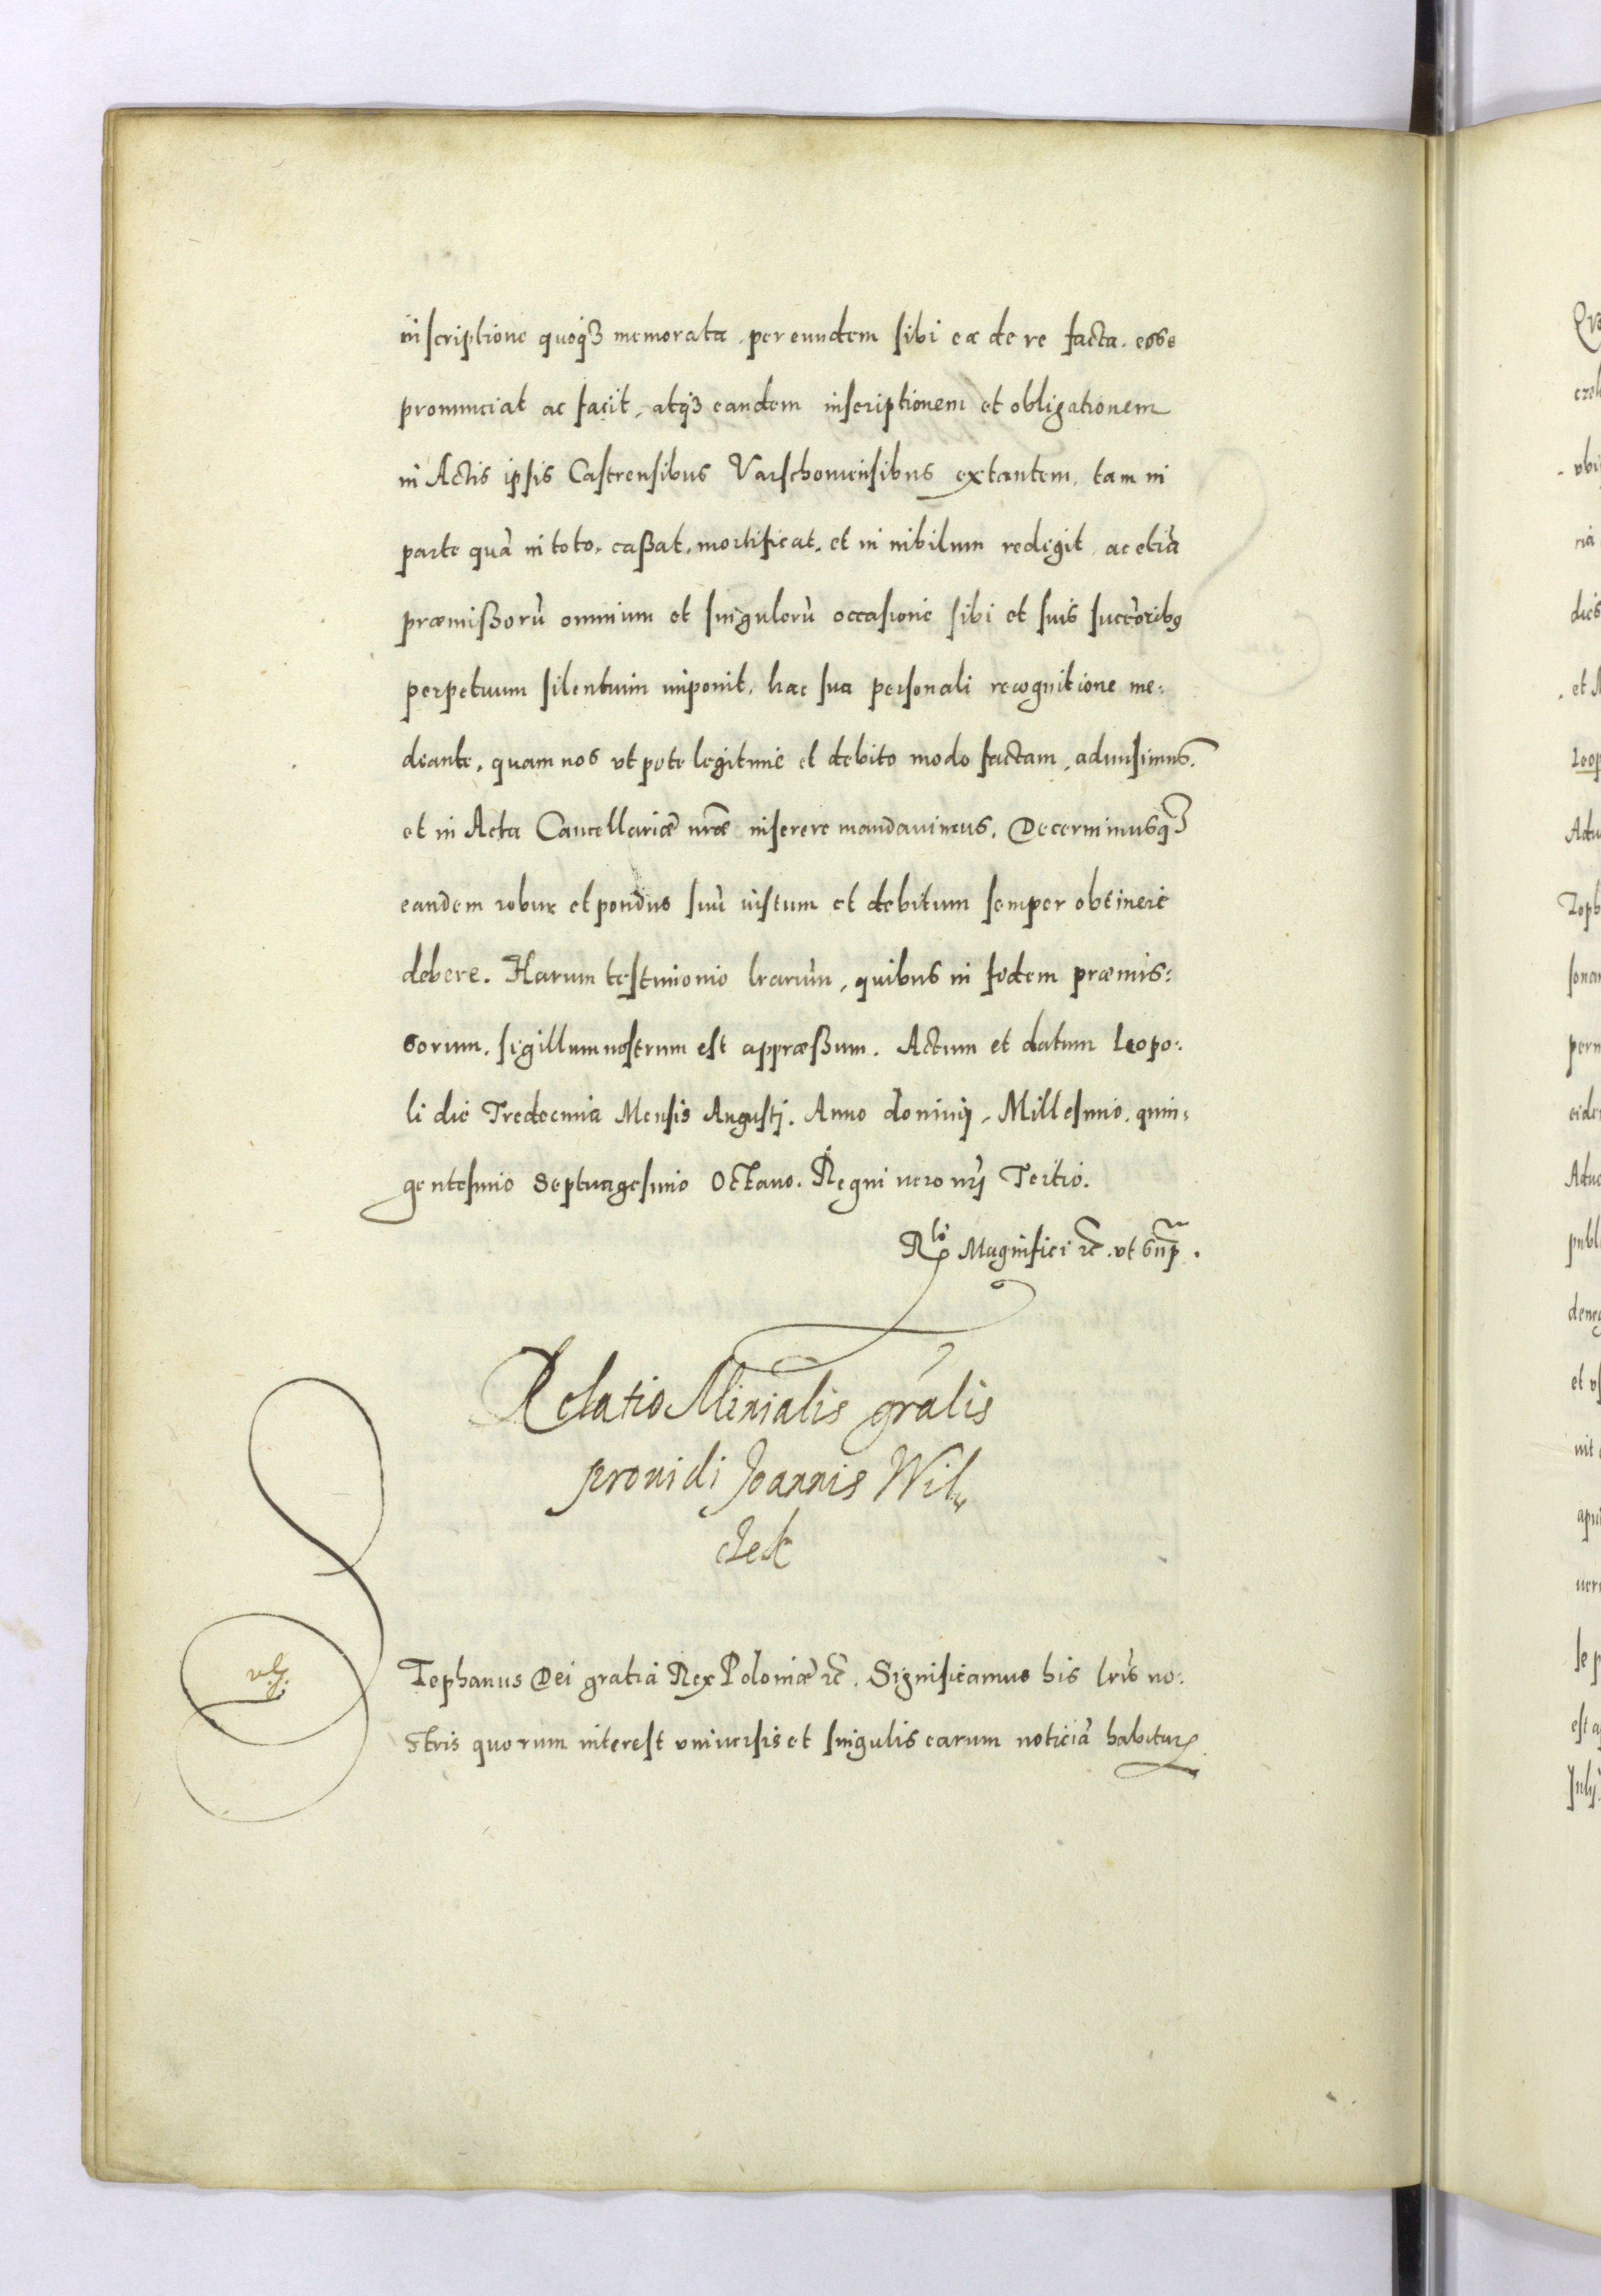 inscriptione quoqȝ memorata, per eundem sibi ea de re facta. esse
pronunciat ac facit, atqȝ eandem inscriptionem et obligationem
in Actis ipsis Castrensibus Varschouiensibus extantem, tam in
parte quā in toto, caßat, mortificat, et in nihilum redegit, ac etiā
præmißorū omnium et singulorū occasione sibi et suis succ̄oribꝰ
perpetuum silentium imponit, hac sua personali recognitione me:
diante, quam nos vt pote legitime et debito modo factam, admisimus.
et in Acta Cancellariæ nr̄æ inserere mandauimus. Decernimusqȝ
eandem robur et pondus suū iustum et debitum semper obtinere
debere. Harum testimonio lrarum̄, quibus in fidem præmis:
sorum, sigillum nostrum est appræßum. Actum et datum Leopo:
li die Tredecima Mensis Augustj. Anno dominij, Millesimo, quin:
gentesimo Septuagesimo Octauo. Regni uero nrj̄ Tertio.
Rlo Magnifici ꝛc̄. vt sup̄.
Relatio Minialis grālis
prouidi Joannis Wil„
czek
Tephanus Dei gratia Rex Poloniæ ꝛc̄. Significamus his lrīs no:
stris quorum interest vniuersis et singulis earum noticiā habituꝝ